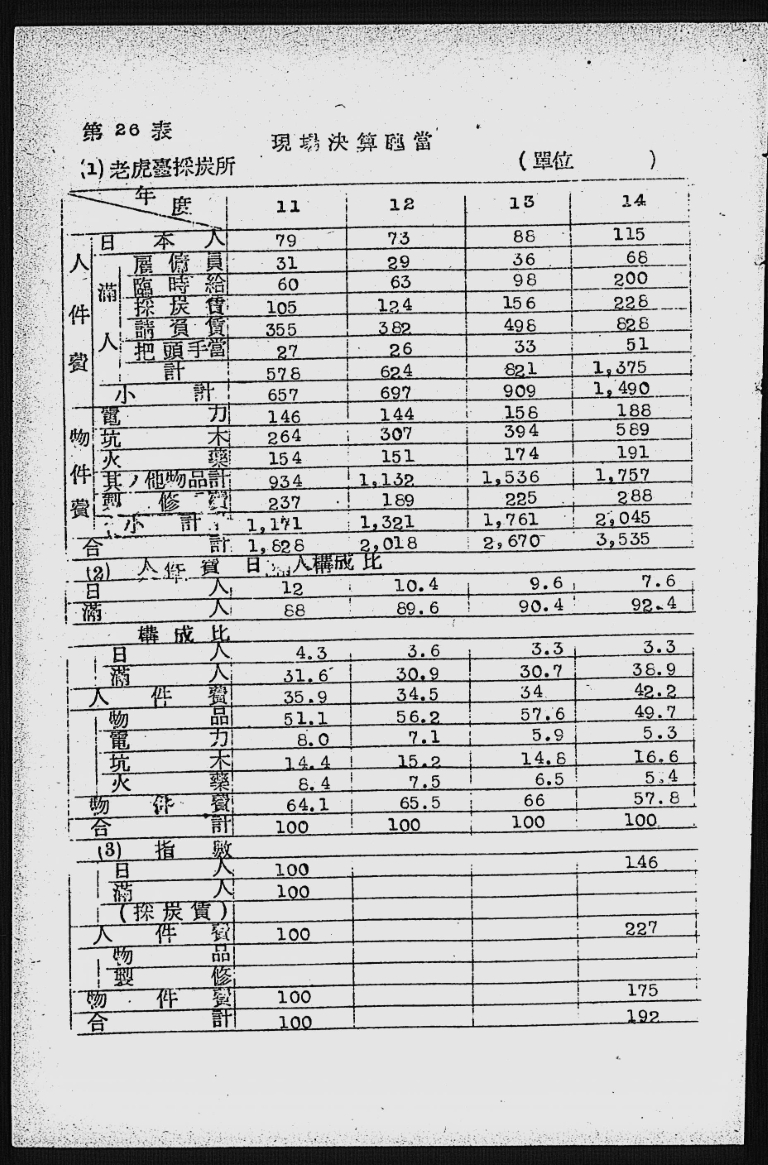 第 26 表
現場決算砘當
(1) 老虎臺採炭所 (單位 )
年度 11 12 13 14
人件費 日本人 79 73 88 115
滿人 雇傭員 31 29 36 68
臨時給 60 63 98 200
採炭賃 105 124 156 228
請負賃 355 382 498 828
把頭手當 27 26 33 51
計 578 624 821 1,375
小計 657 697 909 1,490
物件費 電力 146 144 158 188
坑木 264 307 394 589
火藥 154 151 174 191
其ノ他物品計 934 1,132 1,536 1,757
製修費 237 189 225 288
小計 1,171 1,321 1,761 2,045
合計 1,828 2,018 2,670 3,535
(2) 人件費 日 人構成比
日人 12 10.4 9.6 7.6
滿人 88 89.6 90.4 92.4
構成比
日人 4.3 3.6 3.3 3.3
滿人 31.6 30.9 30.7 38.9
人件費 35.9 34.5 34 42.2
物品 51.1 56.2 57.6 49.7
電力 8.0 7.1 5.9 5.3
坑木 14.4 15.2 14.8 16.6
火藥 8.4 7.5 6.5 5.4
物件費 64.1 65.5 66 57.8
合計 100 100 100 100
(3) 指數
日人 100 146
滿人 100
(採炭賃)
人件費 100 227
物品
製修
物件費 100 175
合計 100 192